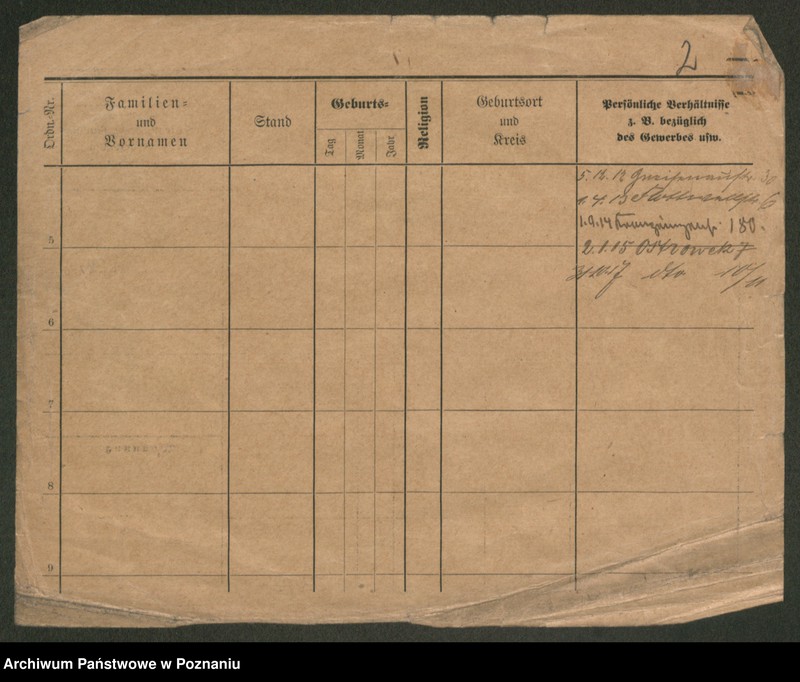 2
Ordn.-Nr.
Familien=
und
Vornamen
Stand
Geburts=
Tag
Monat
Jahr
Religion
Geburtsort
und
Kreis
Persönliche Verhältnisse
z. B. bezüglich
des Gewerbes usw.
5.12.12 Gneisenaustr. 30
1.4.13 6
1.9.14 180.
2.1.15 Ostrowek 7
dto 10/11
5
6
7
8
9
Archiwum Państwowe w Poznaniu